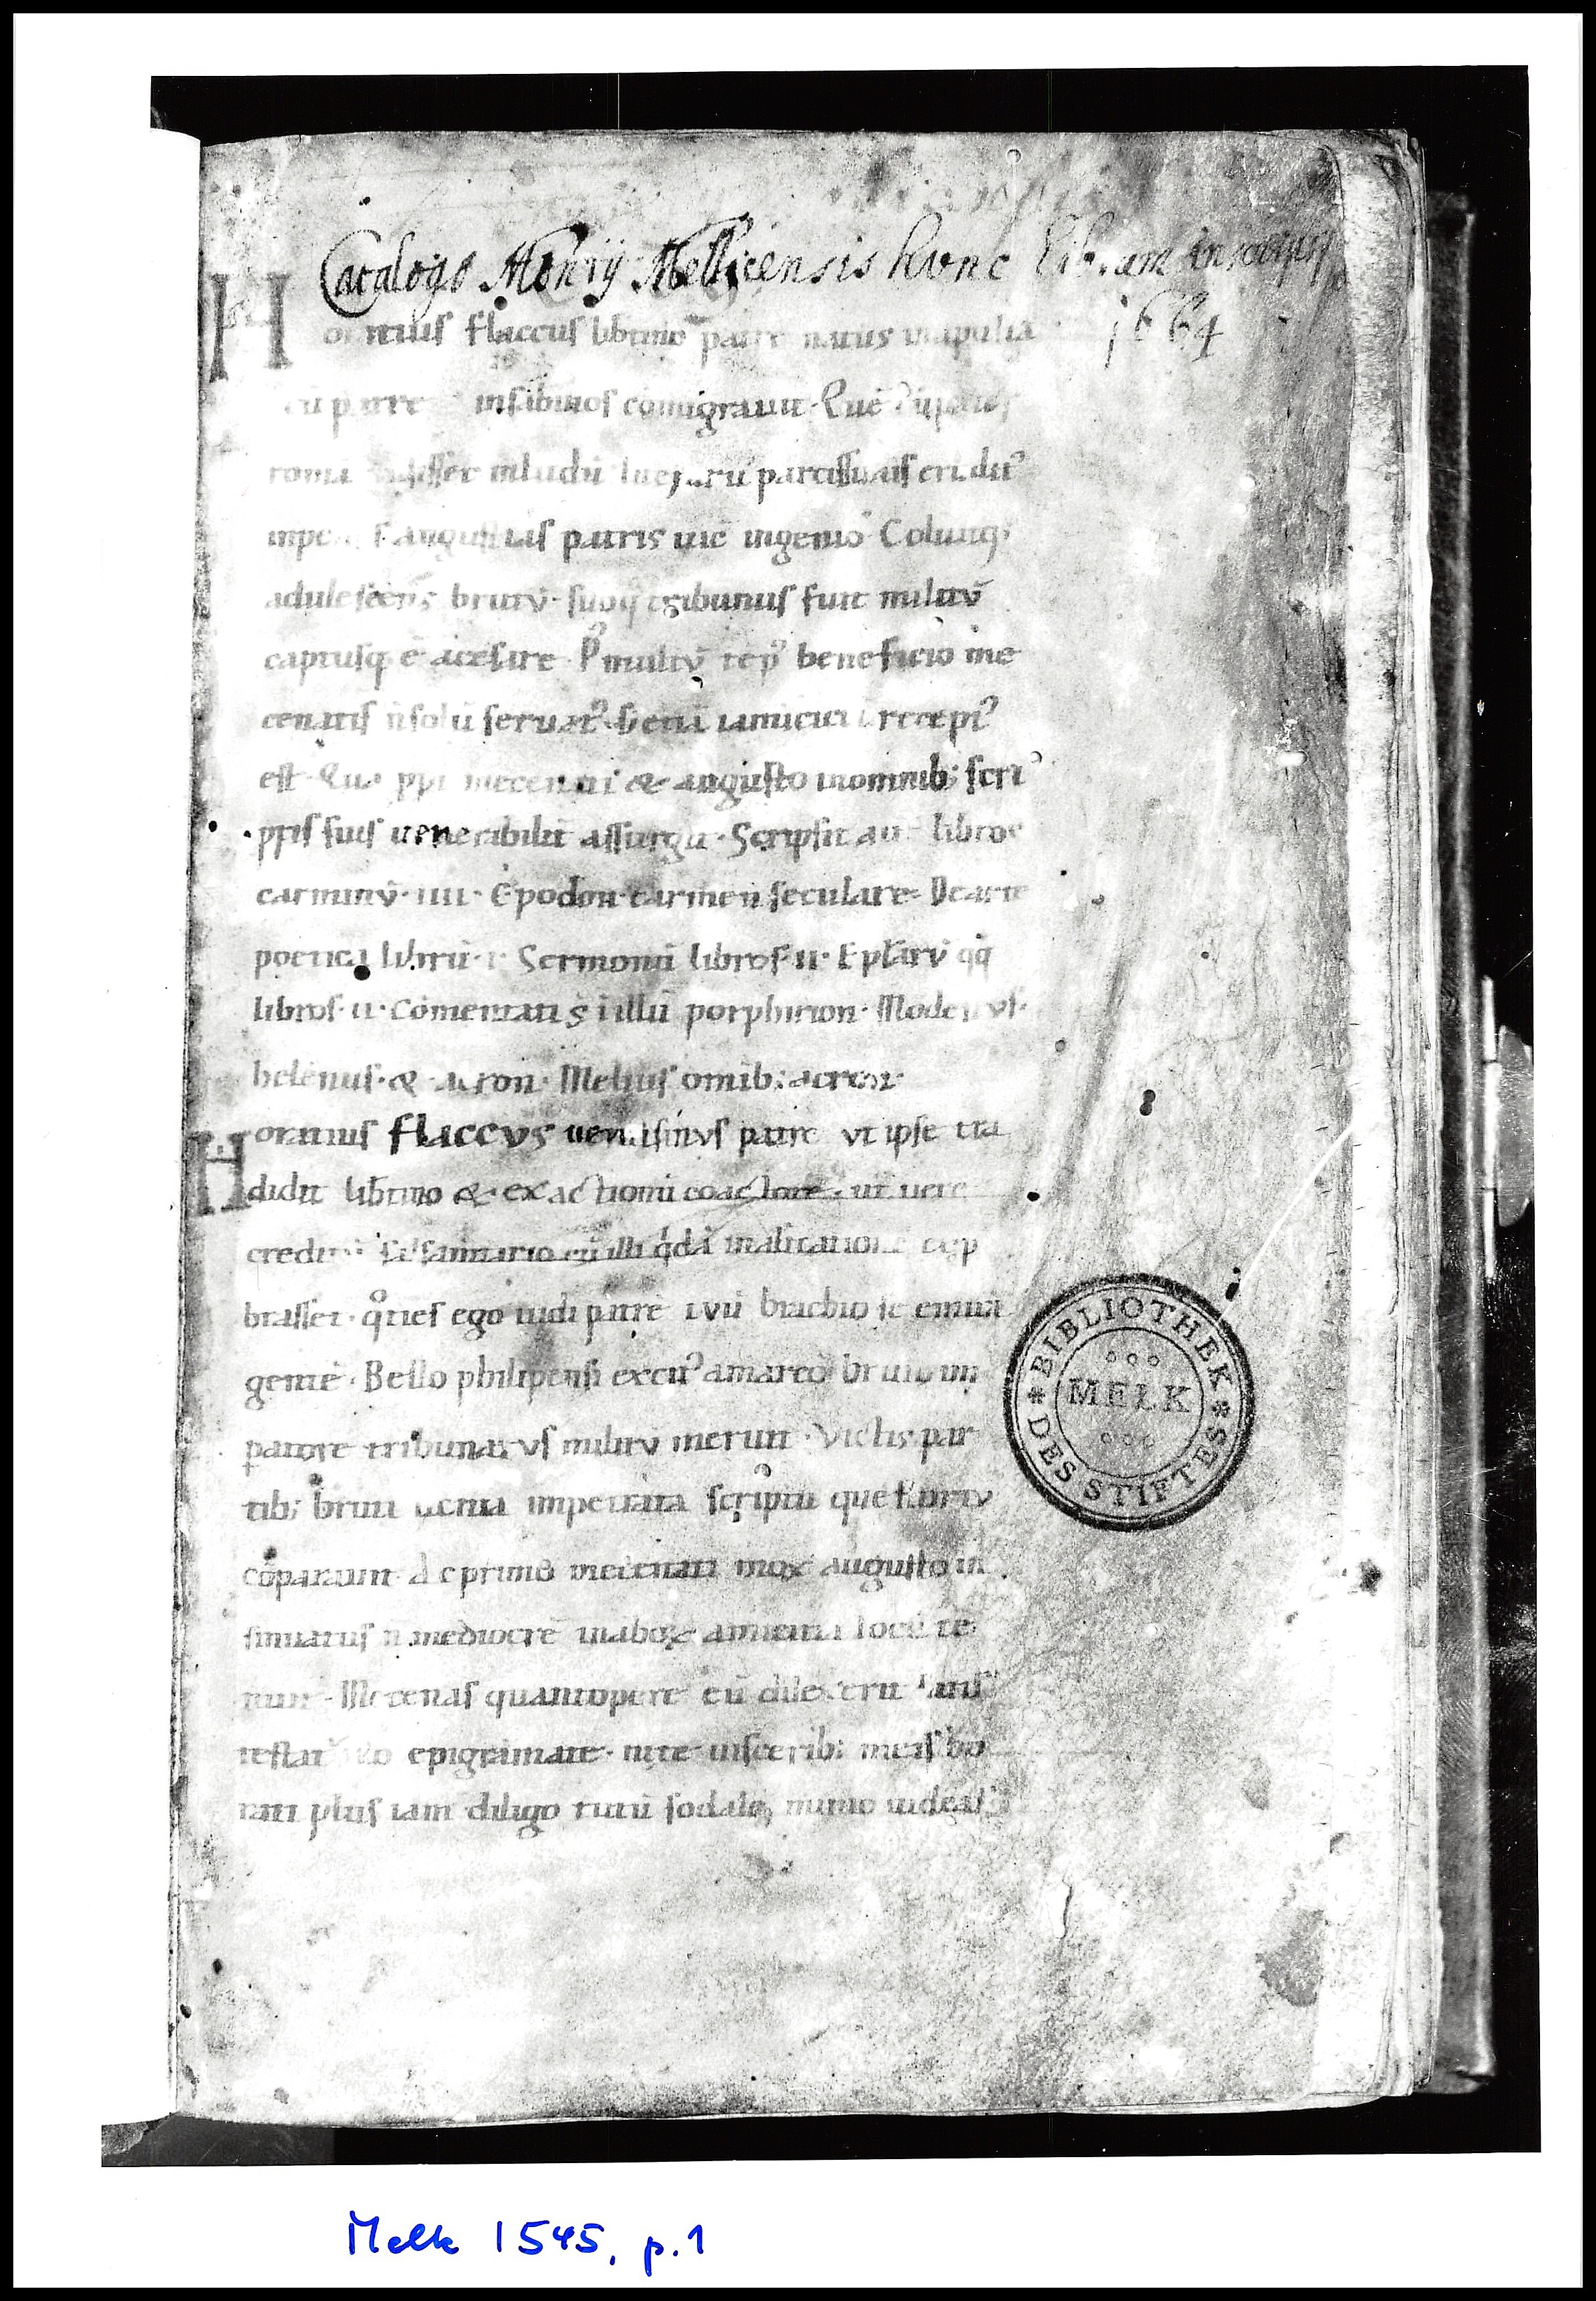 Catalogo Monrij Mellicensis hunc librum inscripsi
1664
Horatius flaccus libtino patre natus inapulia
cū patre insabinos cōmigrauit. Quē
romā inludū
angustiis patris uic̄ ingenio Coluitq;
adulescens brutū. suoq; tribunus fuit militū
captusq; ē acesare. P multū tēp beneficio me
cenatis n̄ solū seruat' s; etiā iamicicia recept'
est. Qua ppt mecenati & augusto inomnib; scri
ptis suis uenerabilit assurgit. Scripsit aut libros
carminū. IIII. Epodon. carmen seculare. De arte
poetica librū. I. Sermonū libros. II. Eplarū qq
libros. II. Cōmentati s̄ i illū porphirion. Modestus.
helenus. & acron. Melius omīb; acron.
Horatius flaccus uenusinus patre ut ipse tra
didit libtino & exactionū coactore. ut uere
creditū salsamtario cū illi qdā inalticatione exp
brasset. qties ego uidi patrē tuū brachio se emun
gentē. Bello philipensi excit' amarco bruto im
patore tribunatus militū meruit. Victis par
tib; bruti uenia impetrata scriptū questoriū
cōparauit. ac primo mecenati mox augusto in
sinuatus n̄ mediocrē inambox amicitia locū te
nuit. Mecenas quantopere eū dilexerit satis
testat' illo epigramate. nite uisceribī meis ho
rati plus iam diligo titū sodalē, nimio uideas
BIBLIOTHEK
MELK
DES STIFTES
Melk 1545, p.1